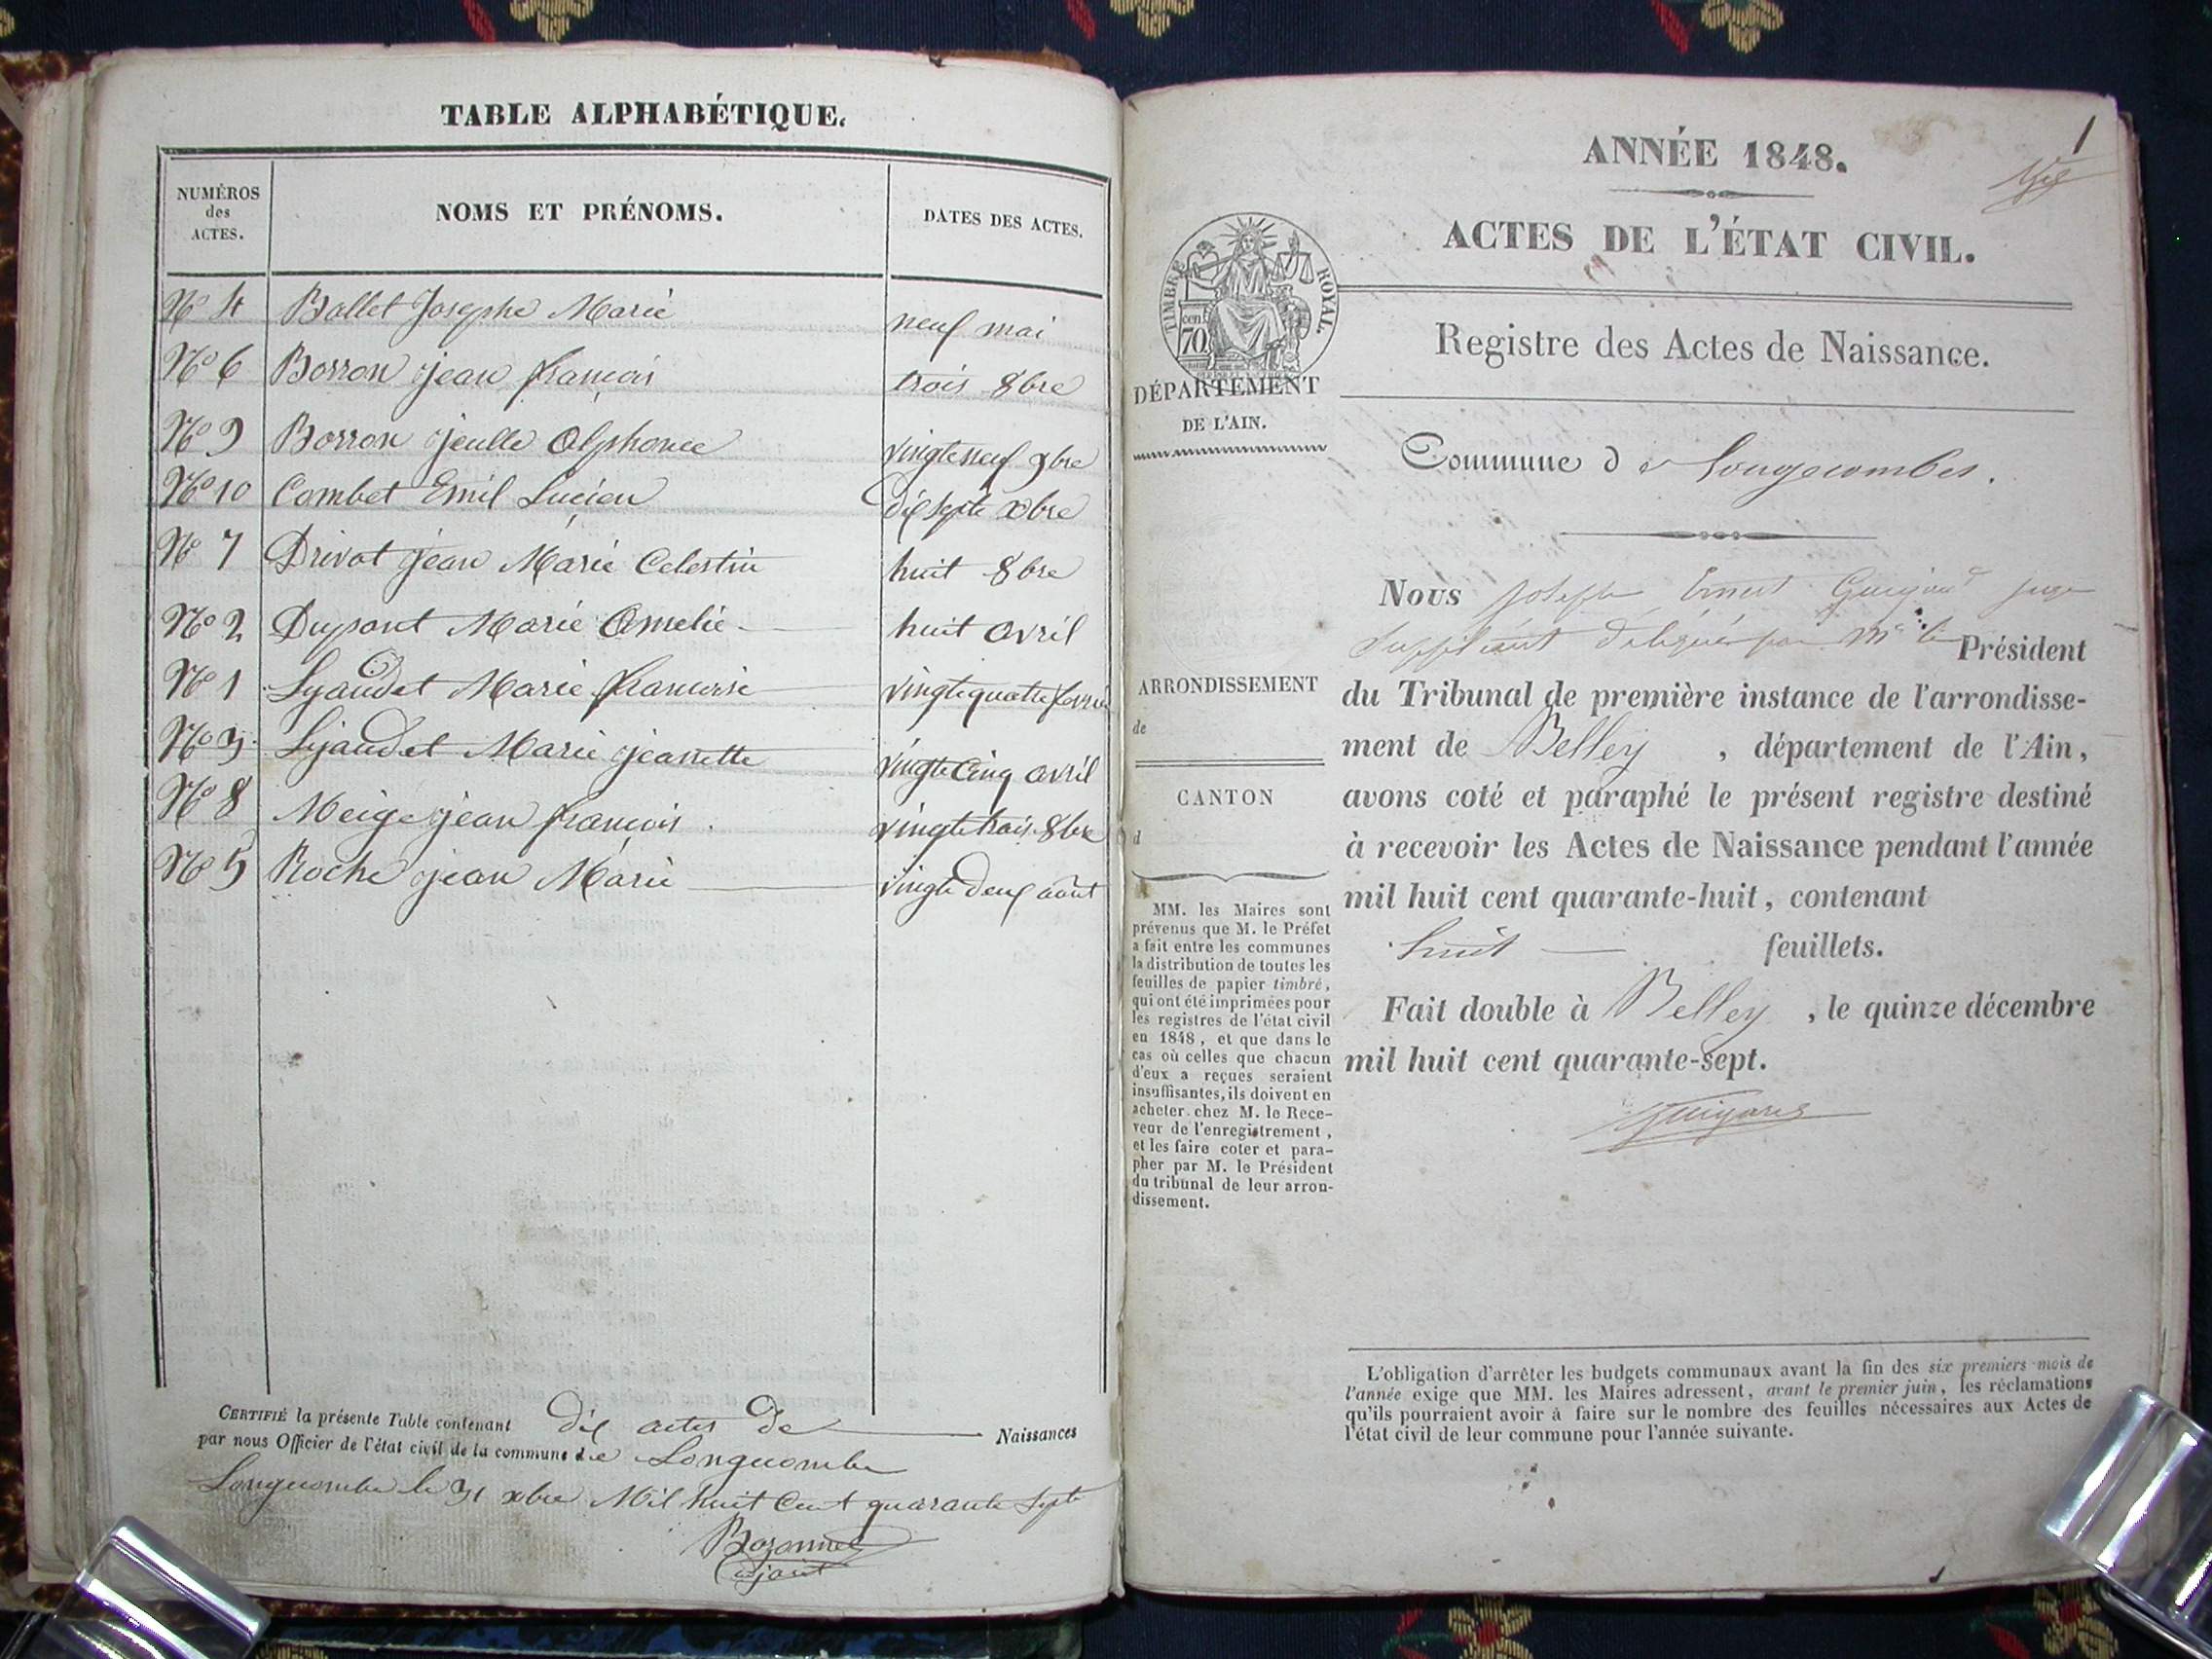 TABLE ALPHABÉTIQUE.
NUMÉROS
des
ACTES.
NOMS ET PRÉNOMS.
DATES DES ACTES.
No 4 Ballet Josephe Marie neuf mai
No 6 Borron jean francois trois 8bre
No 9 Borron Alphonce vingte neuf 9bre
No 10 Combet Emil Lucien dix septe xbre
No 7 Drivot jean Marie Celestin huit 8bre
No 2 Dupont Marie Amelie huit avril
No 1 Lyaudet Marie francoise vingte quatre
No 3 Lyaudet Marie jeanette vingte Cinq avril
No 8 Meige jean francois vingte trois 8bre
No 5 Roche jean Marie vingte deux août
CERTIFIÉ la présente Table contenant dix actes De Naissances
par nous Officier de l'état civil de la commune de Longecombe
Longecombe le 31 xbre Mil huit Cent quarante Septe
Bozonnet
adjoint
1
ANNÉE 1848.
ACTES DE L'ÉTAT CIVIL.
TIMBRE ROYAL.
cent
70
Registre des Actes de Naissance.
DÉPARTEMENT
DE L'AIN.
Commune de Longecombes.
Nous Joseph Ernest juge
Suppléant délégué par Mr le Président
ARRONDISSEMENT
de
CANTON
d
du Tribunal de première instance de l'arrondisse-
ment de Belley, département de l'Ain,
avons coté et paraphé le présent registre destiné
à recevoir les Actes de Naissance pendant l'année
mil huit cent quarante-huit, contenant
huit feuillets.
Fait double à Belley, le quinze décembre
mil huit cent quarante-sept.
MM. les Maires sont
prévenus que M. le Préfet
a fait entre les communes
la distribution de toutes les
feuilles de papier timbré,
qui ont été imprimées pour
les registres de l'état civil
en 1848, et que dans le
cas où celles que chacun
d'eux a reçues seraient
insuffisantes, ils doivent en
acheter chez M. le Rece-
veur de l'enregistrement,
et les faire coter et para-
pher par M. le Président
du tribunal de leur arron-
dissement.
L'obligation d'arrêter les budgets communaux avant la fin des six premiers mois de
l'année exige que MM. les Maires adressent, avant le premier juin, les réclamations
qu'ils pourraient avoir à faire sur le nombre des feuilles nécessaires aux Actes de
l'état civil de leur commune pour l'année suivante.